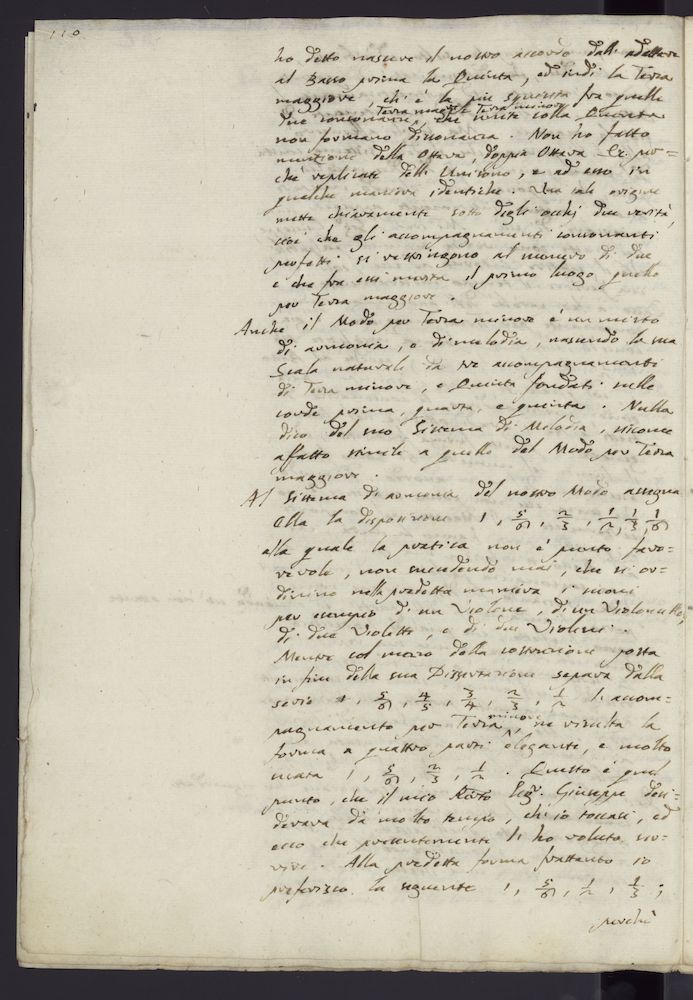 110
ho detto nascere il nostro accordo dall' adattare
al Basso prima la Quinta, ed indi la Terza
maggiore, ch' è la più squisita fra quelle
due consonanze, Terza magg.e Terza minore, che unite colla Quinta
non formano dissonanza. Non ho fatto
menzione della Ottava, doppia Ottava &c. per=
chè replicate dell' Unisono, e ad esso in
qualche maniera identiche. Una tale origine
mette chiaramente sotto degli occhj due verità,
cioè che gli accompagnamenti consonanti
perfetti si restringono al numero di due
e che fra essi merita il primo luogo quello
per Terza maggiore.
Anche il Modo per Terza minore è un misto
di armonia, e di melodia, nascendo la sua
Scala naturale da tre accompagnamenti
di Terza minore, e Quinta fondati nelle
corde prima, quarta, e quinta. Nulla
dico del suo Sistema di Melodia, siccome
affatto simile a quello del Modo per Terza
maggiore.
Al Sistema di armonia del nostro Modo assegna
Ella la disposizione 1, 5/6, 2/3, 1/2, 1/3, 1/6
alla quale la pratica non è punto favo=
revole, non succedendo mai, che si or=
dinino nella predetta maniera i suoni
per esempio di un Violone, di un Violoncello,
di due Violette, e di due Violini.
Mentre col mezzo della costruzione posta
in fine della sua Dissertazione separa dalla
serie 1, 5/6, 4/5, 3/4, 2/3, 1/2 l' accom=
pagnamento per Terza minore, ne risulta la
forma a quattro parti elegante, e molto
usata 1, 5/6, 2/3, 1/2. Questo è quel
punto, che il mio Sig.r Giuseppe desi=
derava da molto tempo, ch' io toccasi, ed
ecco che presentemente l' ho voluto ser=
vire. Alla predetta forma frattanto io
preferisco la seguente 1, 5/6, 1/2, 1/3;
perchè